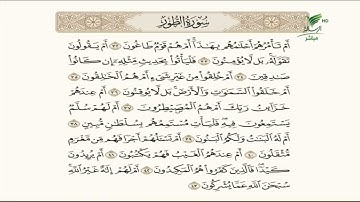 سُورَةُ الطُّورِ
HD
مباشر
أَمْ تَأْمُرُهُمْ أَحْلَامُهُم بِهَٰذَا أَمْ هُمْ قَوْمٌ طَاغُونَ ٣٢ أَمْ يَقُولُونَ
تَقَوَّلَهُ بَل لَّا يُؤْمِنُونَ ٣٣ فَلْيَأْتُوا بِحَدِيثٍ مِّثْلِهِ إِن كَانُوا
صَادِقِينَ ٣٤ أَمْ خُلِقُوا مِنْ غَيْرِ شَيْءٍ أَمْ هُمُ الْخَالِقُونَ ٣٥
أَمْ خَلَقُوا السَّمَاوَاتِ وَالْأَرْضَ بَل لَّا يُوقِنُونَ ٣٦ أَمْ عِندَهُمْ
خَزَائِنُ رَبِّكَ أَمْ هُمُ الْمُصَيْطِرُونَ ٣٧ أَمْ لَهُمْ سُلَّمٌ
يَسْتَمِعُونَ فِيهِ فَلْيَأْتِ مُسْتَمِعُهُم بِسُلْطَانٍ مُّبِينٍ ٣٨
أَمْ لَهُ الْبَنَاتُ وَلَكُمُ الْبَنُونَ ٣٩ أَمْ تَسْأَلُهُمْ أَجْرًا فَهُم مِّن مَّغْرَمٍ
مُّثْقَلُونَ ٤٠ أَمْ عِندَهُمُ الْغَيْبُ فَهُمْ يَكْتُبُونَ ٤١ أَمْ يُرِيدُونَ
كَيْدًا فَالَّذِينَ كَفَرُوا هُمُ الْمَكِيدُونَ ٤٢ أَمْ لَهُمْ إِلَٰهٌ غَيْرُ اللَّهِ
سُبْحَانَ اللَّهِ عَمَّا يُشْرِكُونَ ٤٣